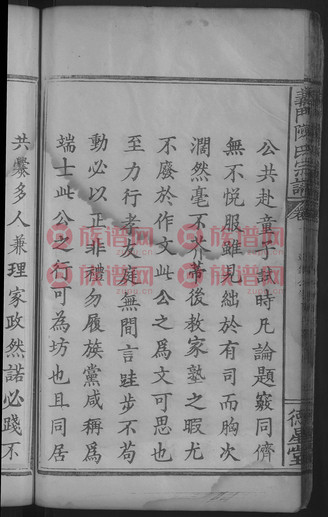 義門陳氏宗譜
德星堂
公共赴童子試時凡論題竅同儕
無不悅服雖見絀於有司而胸次
濶然毫不芥帶後教家塾之暇尤
不廢於作文此公之為文可思也
至力行孝友庭無間言跬步不苟
動必以正非禮勿履族黨咸稱為
端士此公之行可為坊也且同居
共爨多人兼理家政然諾必踐不
族谱网
zupu.cn